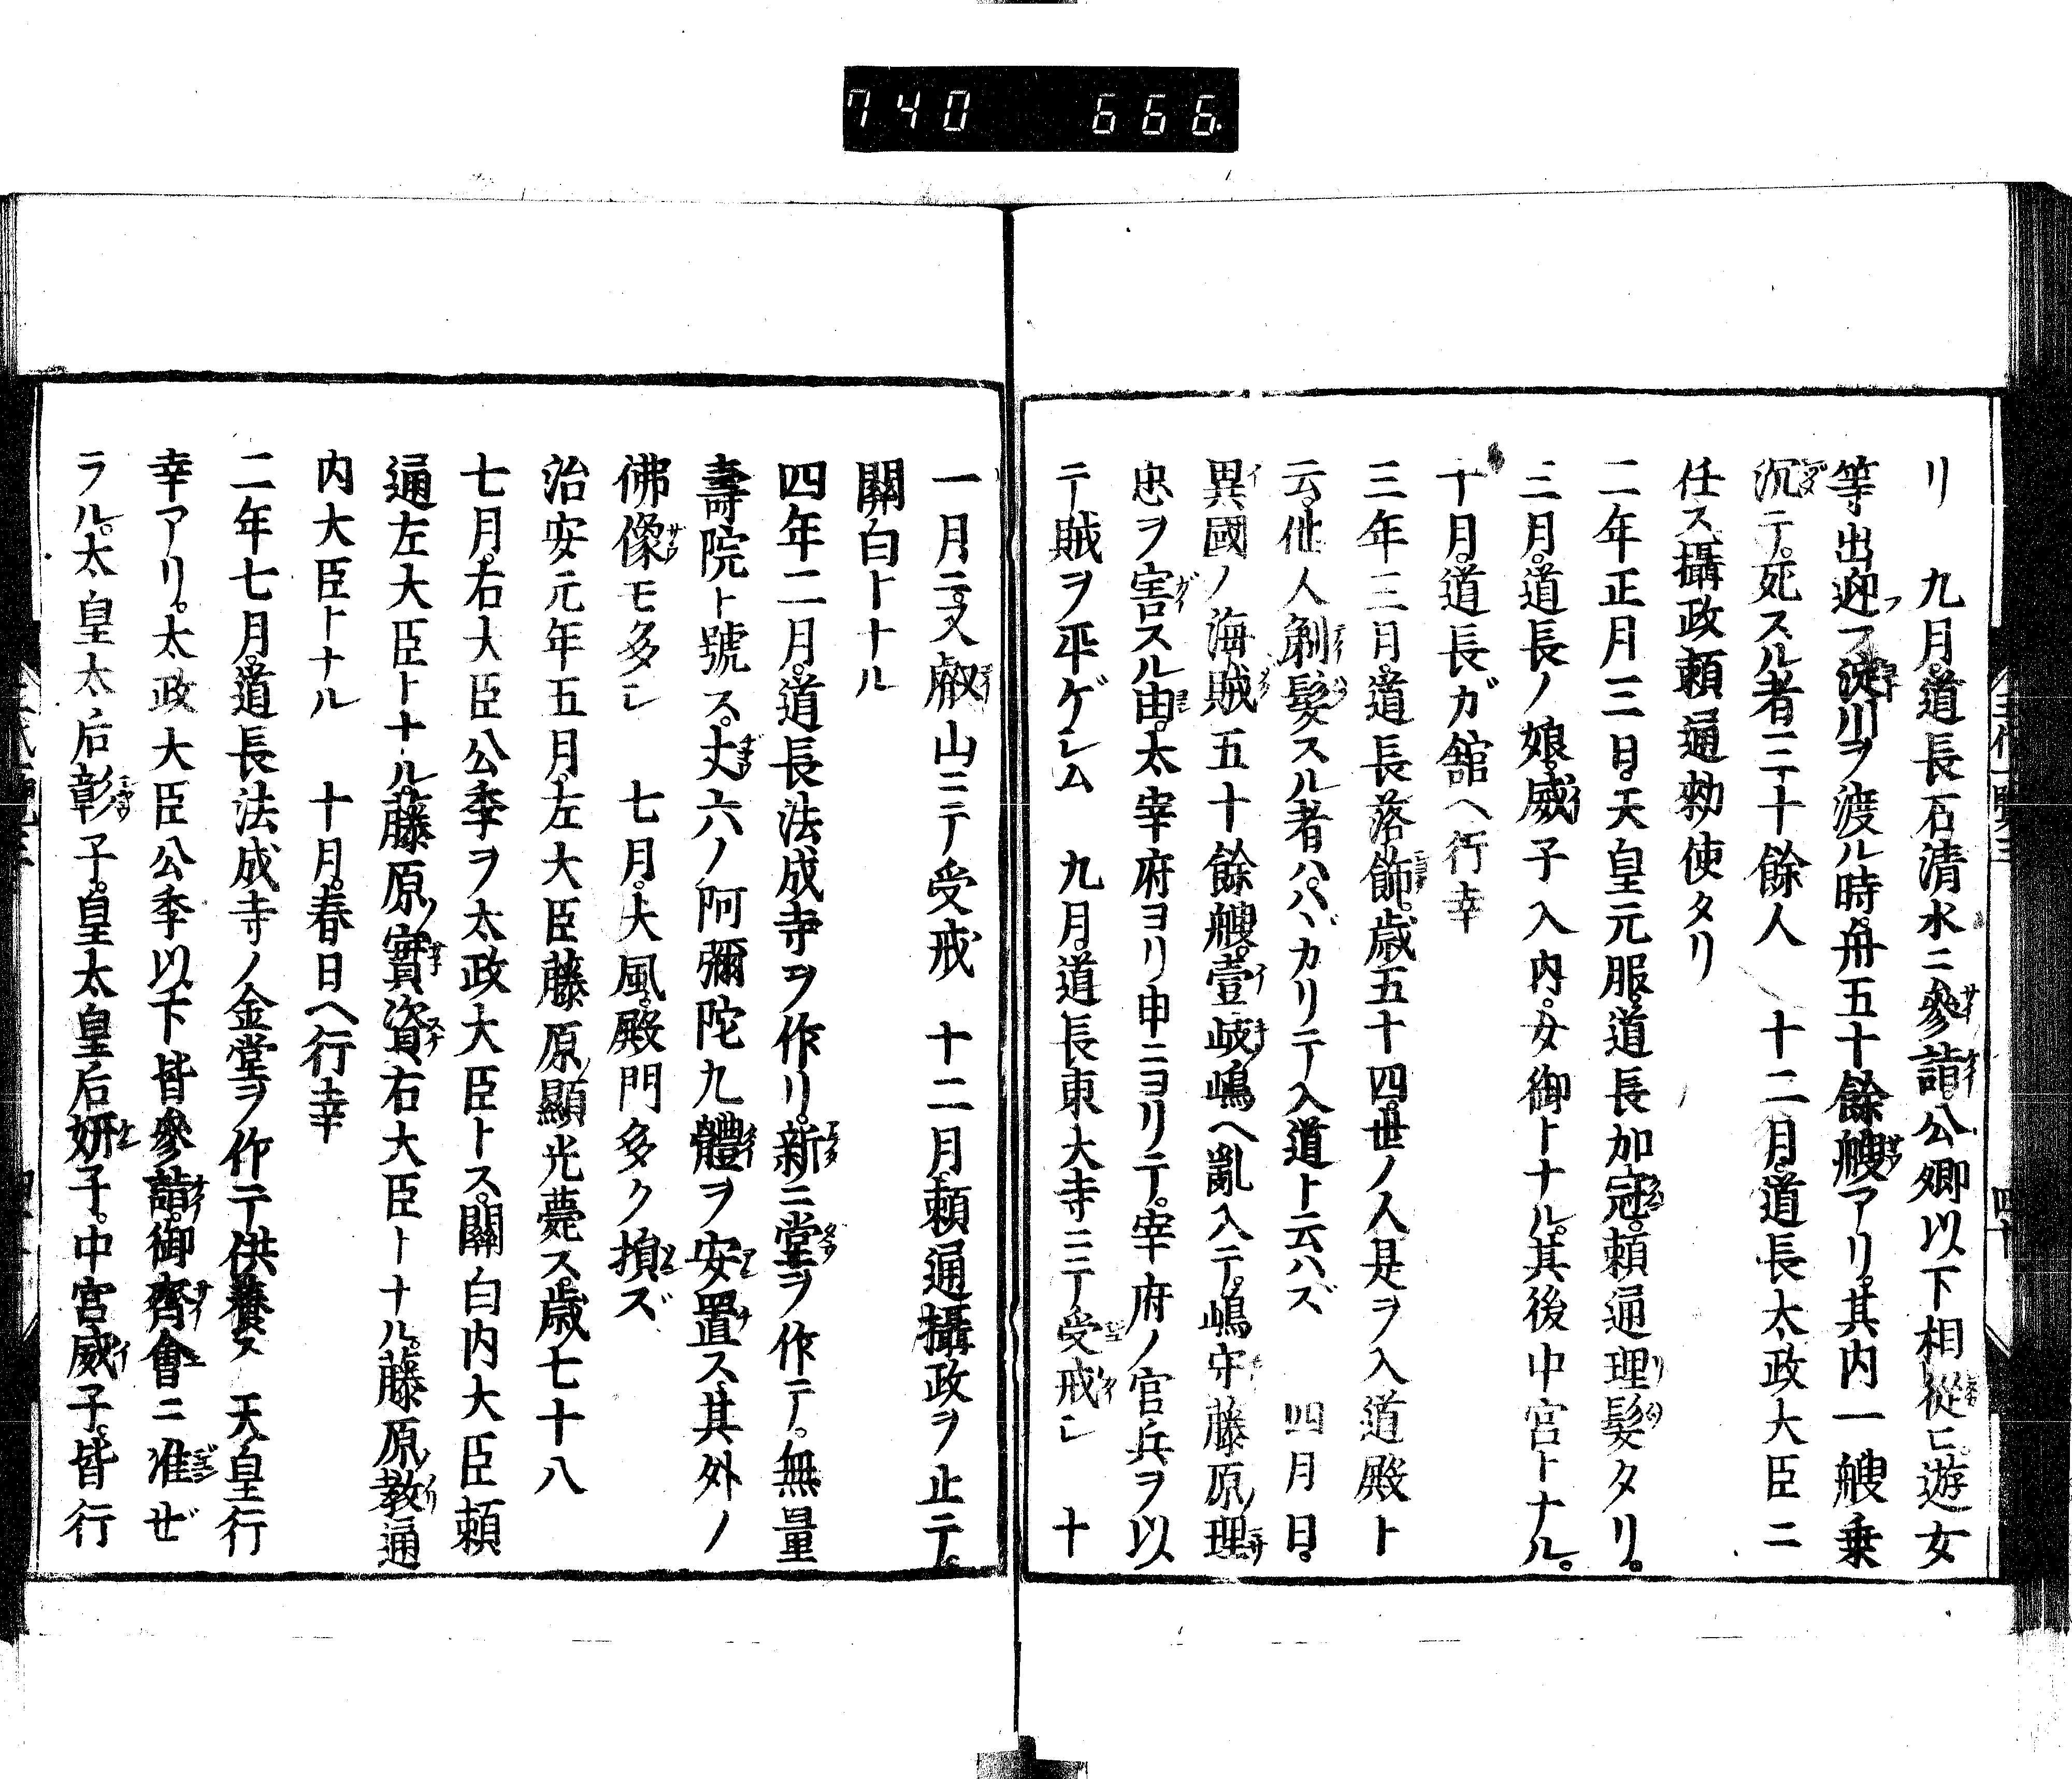 740 666.
リ　九月。道長石清水ニ參詣。公卿以下相從ヒ。遊女
等出迎フ。淀川ヲ渡ル時。舟五十餘艘アリ。其内一艘乗
沉テ。死スル者三十餘人　十二月。道長太政大臣ニ
任ス。攝政頼通勅使タリ
二年正月三日。天皇元服。道長加冠。頼通理髮タリ。
三月。道長ノ娘。威子入内。女御トナル。其後中宮トナル。
十月。道長ガ舘ヘ行幸
三年三月。道長落飾。歳五十四。世ノ人是ヲ入道殿ト
云。他人剃髮スル者ハ。ハヾカリテ入道ト云ハズ　四月日。
異國ノ海賊五十餘艘。壹岐嶋ヘ亂入テ。嶋守藤原ノ理
忠ヲ害スル由。太宰府ヨリ申ニヨリテ。宰府ノ官兵ヲ以
テ賊ヲ平ゲシム　九月。道長東大寺ニテ受戒シ　十
一月ニ。又叡山ニテ受戒　十二月。頼通攝政ヲ止テ。
關白トナル
四年二月。道長法成寺ヲ作リ。新ニ堂ヲ作テ。無量
壽院ト號ス。丈六ノ阿彌陀九體ヲ安置ス。其外ノ
佛像モ多シ　七月。大風。殿門多ク損ズ
治安元年五月。左大臣藤原ノ顯光薨ス。歳七十八
七月。右大臣公季ヲ太政大臣トス。關白内大臣頼
通左大臣トナル。藤原ノ實資右大臣トナル。藤原ノ教通
内大臣トナル　十月。春日ヘ行幸
二年七月。道長法成寺ノ金堂ヲ作テ供養ス　天皇行
幸アリ。太政大臣公季以下皆參詣。御齊會ニ准ゼ
ラル。太皇太后彰子。皇太皇后妍子。中宮威子。皆行